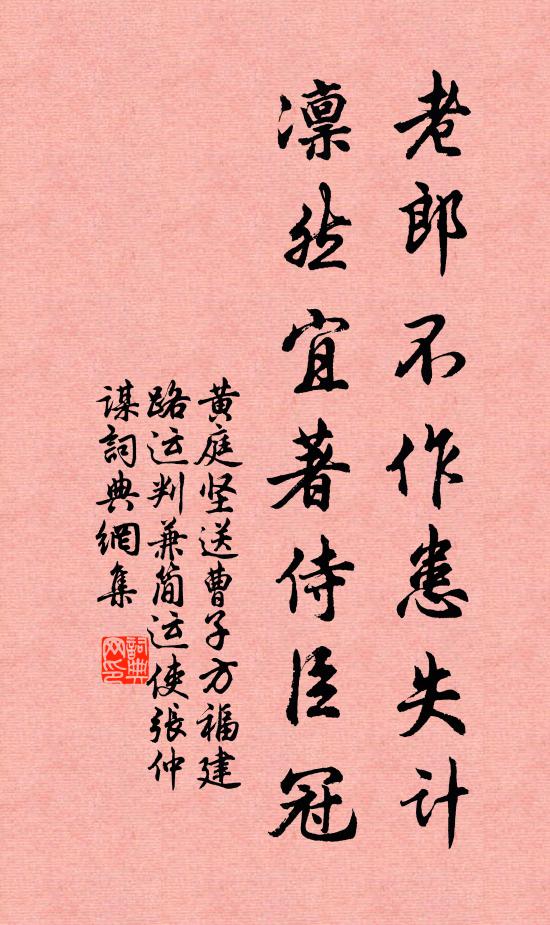 老郎不作患失计
凛然宜著侍臣冠
黄庭坚送曹子方福建
路运判兼简运使張仲
谋詞典網集
詞典
网印